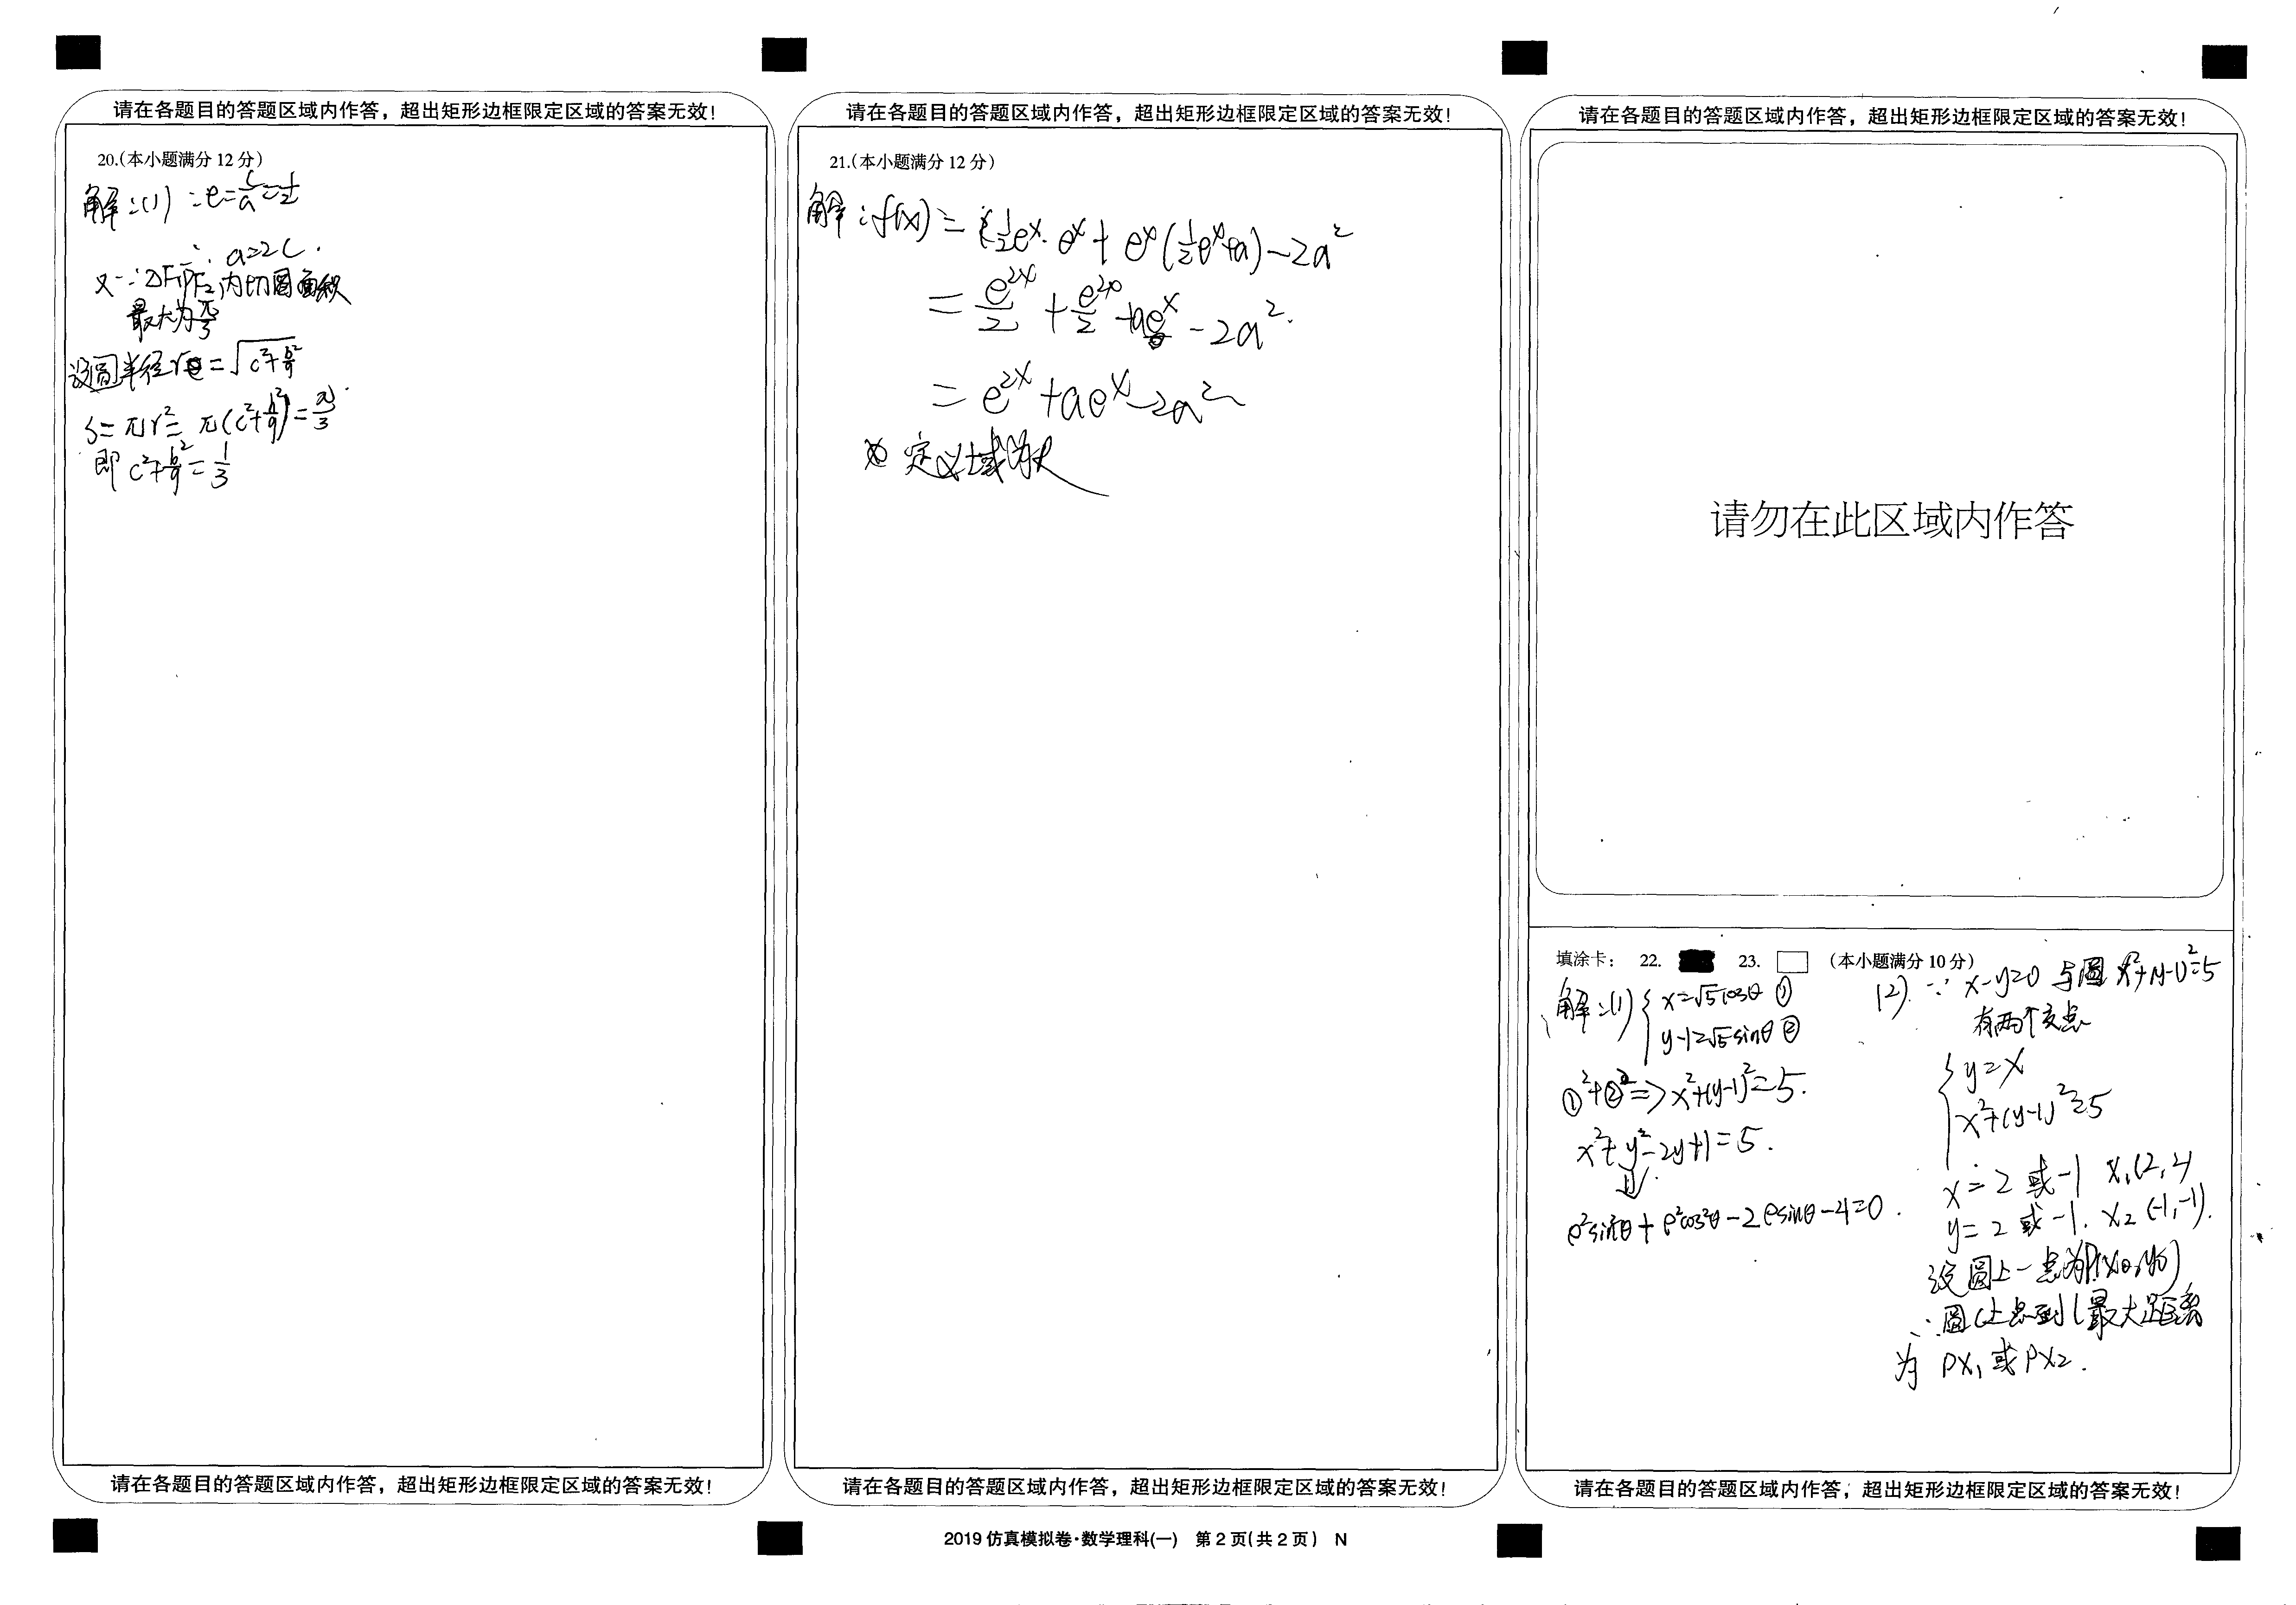 请在各题目的答题区域内作答，超出矩形边框限定区域的答案无效！
20.(本小题满分 12 分)
解:(1) ∵e=c/a=1/2
∴ a=2c.
又∵△F₁PF₂内切圆面积
最大为π/3
设圆半径r=√(c²+b²/9)
S=πr²=π(c²+b²/9)=π/3
即 c²+b²/9=1/3
请在各题目的答题区域内作答，超出矩形边框限定区域的答案无效！
请在各题目的答题区域内作答，超出矩形边框限定区域的答案无效！
21.(本小题满分 12 分)
解:f(x)=½eˣ·eˣ+eˣ(½eˣ+a)-2a²
=e²ˣ/2+e²ˣ/2+aeˣ-2a².
=e²ˣ+aeˣ-2a²
定义域为R
请在各题目的答题区域内作答，超出矩形边框限定区域的答案无效！
请在各题目的答题区域内作答，超出矩形边框限定区域的答案无效！
请勿在此区域内作答
填涂卡： 22. 23. （本小题满分 10 分）
解:(1){x=√5cosθ ①
y-1=√5sinθ ②
①²+②²=>x²+(y-1)²=5.
x²+y²-2y+1=5.
ρ²sin²θ+ρ²cos²θ-2ρsinθ-4=0.
(2). ∵x-y=0 与圆 x²+(y-1)²=5
有两个交点
{y=x
x²+(y-1)²=5
x=2 或-1 X₁(2,2)
y=2 或-1. X₂(-1,-1).
设圆上一点为P(x₀,y₀)
∴圆C上点到l最大距离
为 PX₁或PX₂.
请在各题目的答题区域内作答；超出矩形边框限定区域的答案无效！
2019 仿真模拟卷·数学理科(一) 第 2 页(共 2 页) N